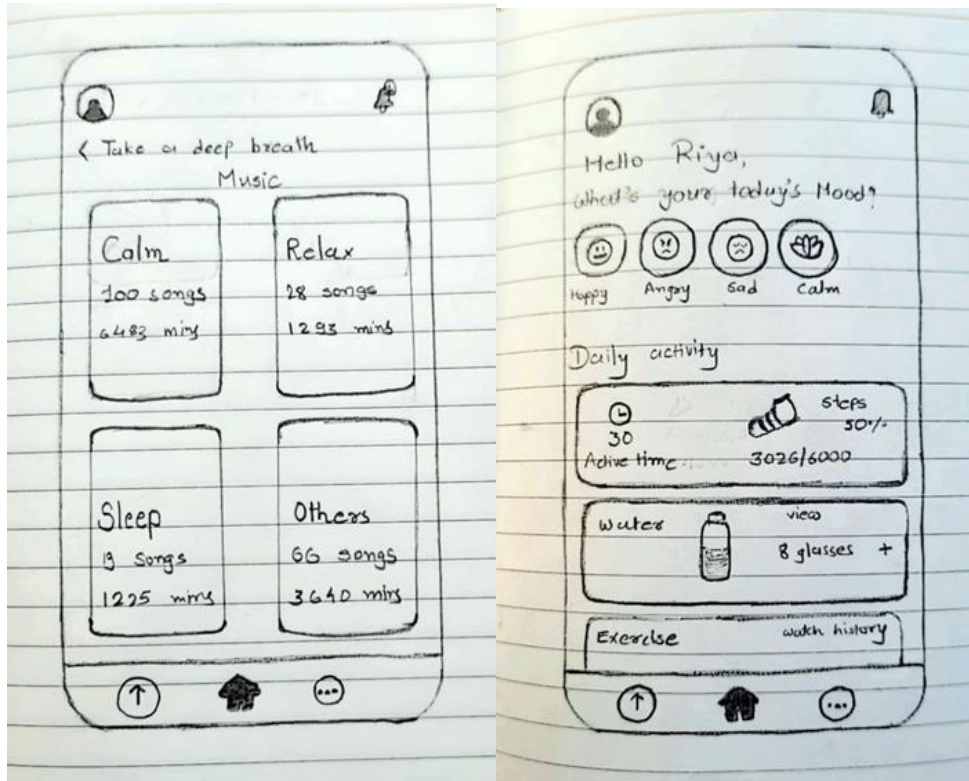 < Take a deep breath
Music
Calm
100 songs
6483 mins
Relax
28 songs
1293 mins
Sleep
19 Songs
1225 mins
Others
66 songs
3640 mins
Hello Riya,
what's your today's Mood?
Happy Angry Sad Calm
Daily activity
30
Active time
Steps
50%
3026/6000
Water
view
8 glasses +
Exercise
watch history